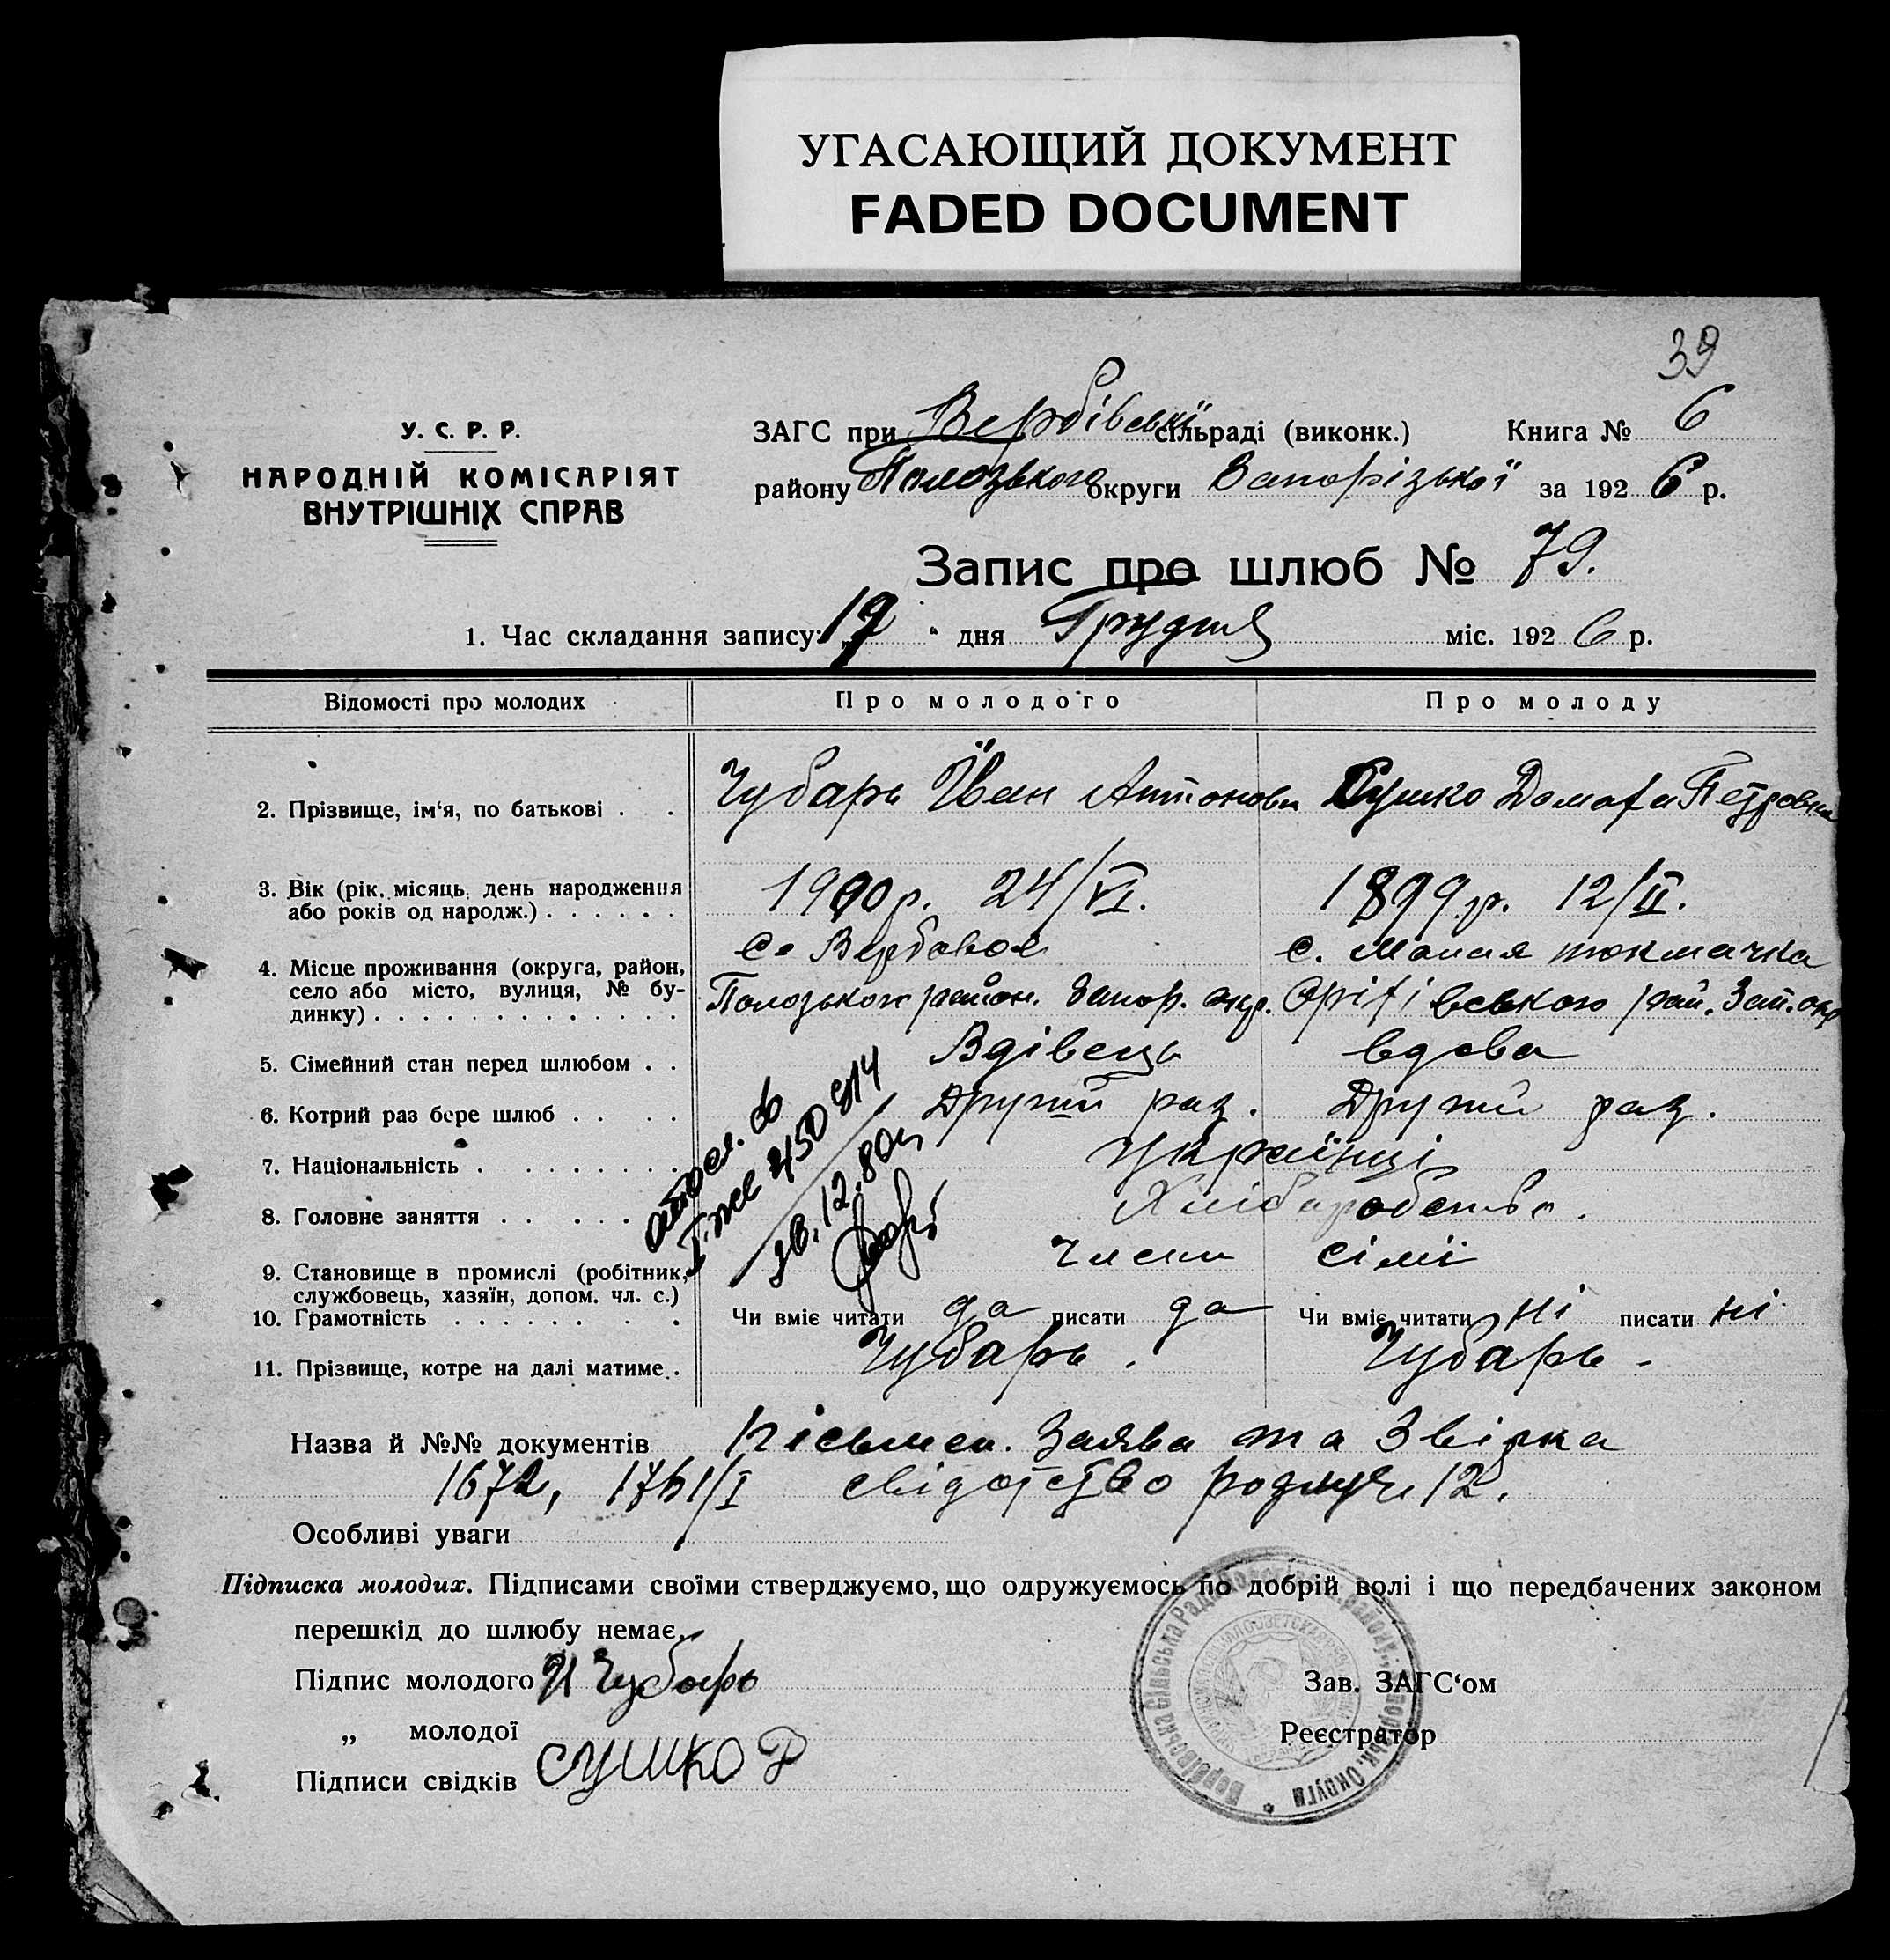 УГАСАЮЩИЙ ДОКУМЕНТ
FADED DOCUMENT
39
У. С. Р. Р.
НАРОДНІЙ КОМІСАРІЯТ
ВНУТРІШНІХ СПРАВ
ЗАГС при Вербівські сільраді (виконк.) Книга № 6
району Полозького округи Запорізької за 1926 р.
Запис про шлюб № 79.
1. Час складання запису: „17“ дня Грудня міс. 1926 р.
Відомості про молодих Про молодого Про молоду
2. Прізвище, ім‘я, по батькові . . Чубарь Йван Антонови Сушко Домаха Петровна
3. Вік (рік, місяць, день народження або років од народж.) . . . . . . 1900 р. 24/VI. 1899 р. 12/II.
4. Місце проживання (округа, район, село або місто, вулиця, № будинку) . . . . . . . . . . . . .
с. Вербовое
Полозького район. Запор. окр.
с. Малая токмачка
Оріхівського рай. Зап. окр
5. Сімейний стан перед шлюбом . . Вдівець вдова
6. Котрий раз бере шлюб . . . . Другий раз. Други раз.
7. Національність . . . . . . . . Українці
8. Головне заняття . . . . . Хліборобство.
9. Становище в промислі (робітник, службовець, хазяїн, допом. чл. с.) Члени сімї
10. Грамотність . . . . . . . . Чи вміє читати да писати да Чи вміє читати ні писати ні
11. Прізвище, котре на далі матиме . . Чубарь. Чубарь -
30.12.80
Назва й №№ документів пісьмен. Заява та Звірка
1672, 1761/I свідотство
12.
Особливі уваги
Підписка молодих. Підписами своїми стверджуємо, що одружуємось по добрій волі і що передбачених законом
перешкід до шлюбу немає.
Підпис молодого И Чубарь Зав. ЗАГС‘ом
„ молодої Реєстратор
Підписи свідків Сушко Д
Вербівська Сільська Рада району, Запорізьк. Округи